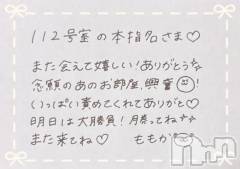 112号室の本指名さま♡
また会えて嬉しい!ありがとう
念願のあのお部屋、興奮!
いっぱい責めてくれてありがと♡
明日は大勝負!勝ってね
また来てね♡ ももか